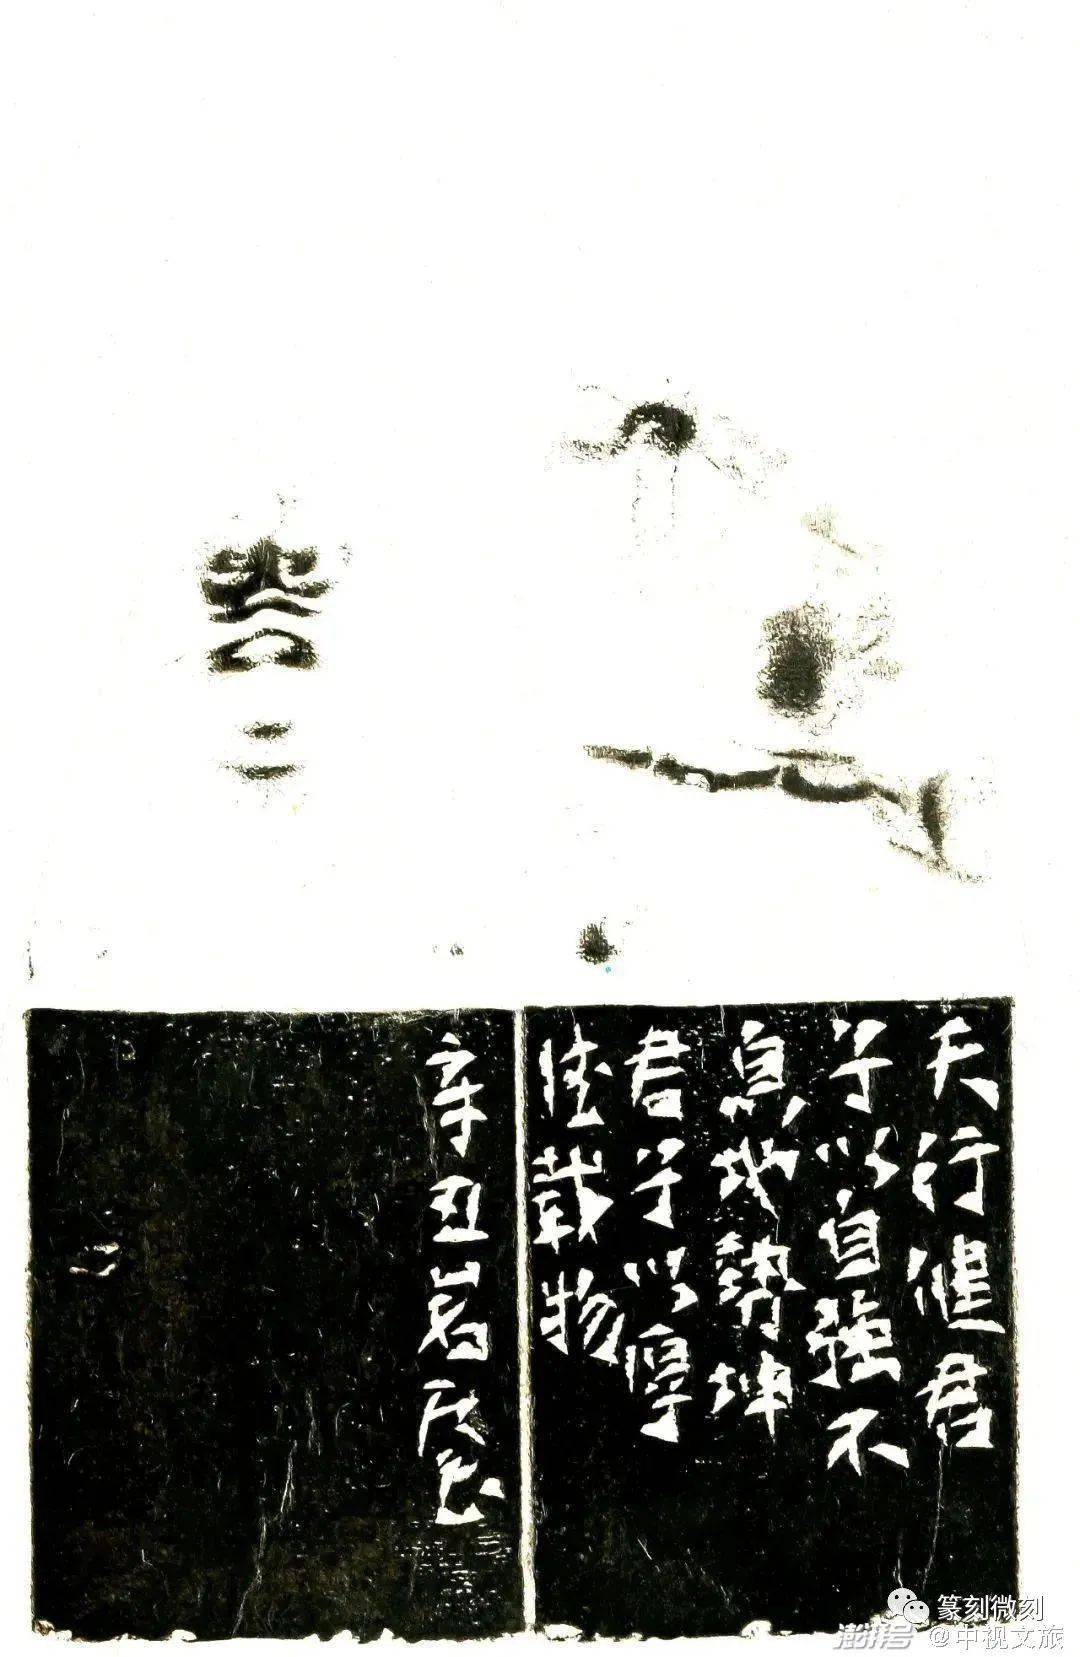 天行健君
子以自强不
息地勢坤
君子以厚
德载物
辛丑岩
篆刻微刻
澎湃号@中视文旅